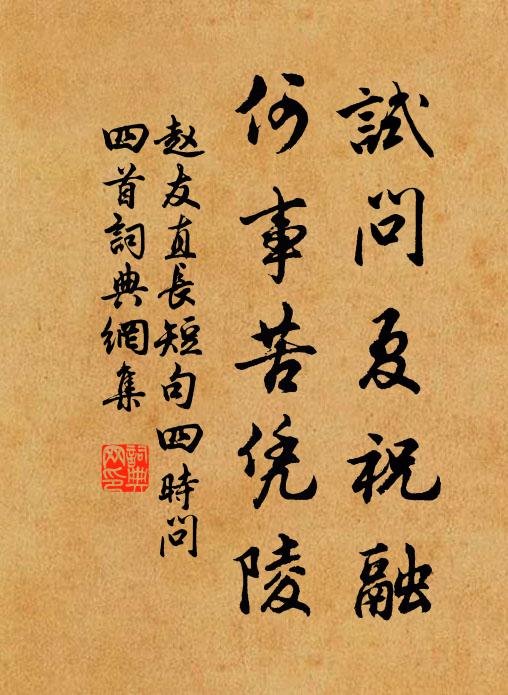 試問夏祝融
何事苦凭陵
赵友直長短句四時問
四首詞典網集
詞典
网印